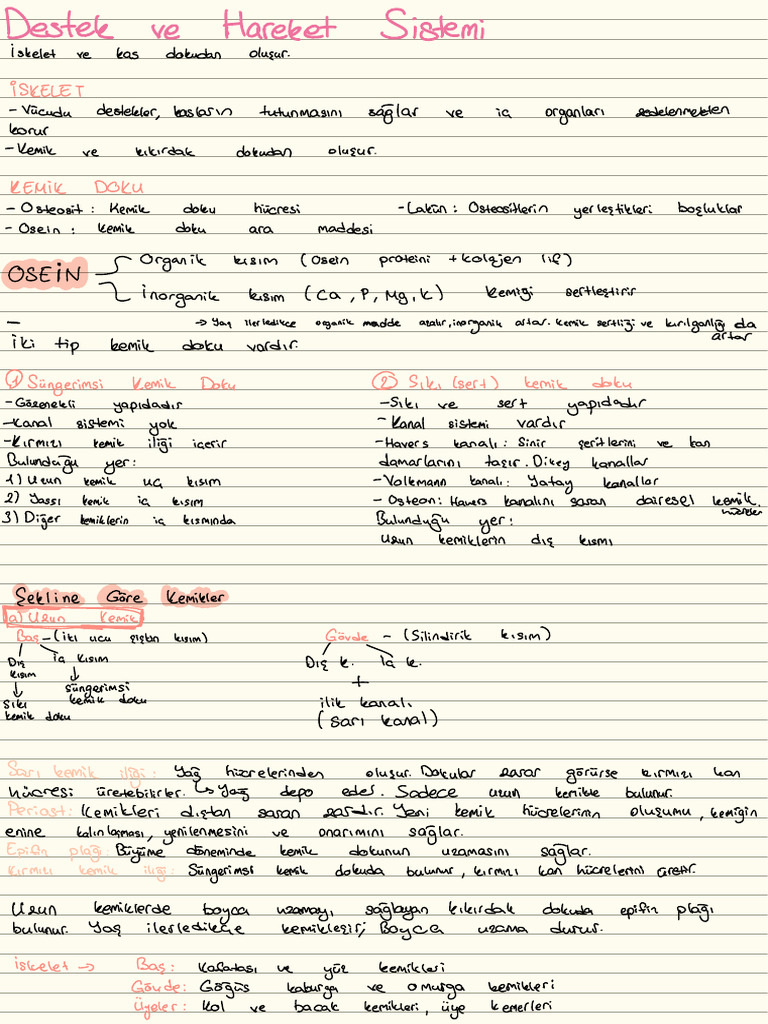 Destek ve Hareket Sistemi
İskelet ve kas dokudan oluşur.
İSKELET
- Vücudu destekler, kasların tutunmasını sağlar ve iç organları zedelenmekten
korur
- Kemik ve kıkırdak dokudan oluşur.
KEMİK DOKU
- Osteosit : Kemik doku hücresi
- Lakün : Osteositlerin yerleştikleri boşluklar
- Osein : Kemik doku ara maddesi
OSEİN
Organik kısım ( Osein proteini + kolajen lif )
İnorganik kısım ( Ca , P , Mg , K ) Kemiği sertleştirir
→ Yaş ilerledikçe organik madde azalır, inorganik artar. Kemik sertliği ve kırılganlığı da
artar
İki tip kemik doku vardır.
① Süngerimsi Kemik Doku
- Gözenekli yapıdadır
- Kanal sistemi yok
- Kırmızı kemik iliği içerir
Bulunduğu yer :
1) Uzun kemik uç kısım
2) Yassı kemik iç kısım
3) Diğer kemiklerin iç kısmında
② Sıkı (sert) kemik doku
- Sıkı ve sert yapıdadır
- Kanal sistemi vardır
- Havers kanalı : Sinir şeritlerini ve kan
damarlarını taşır. Dikey kanallar
- Volkmann kanalı : Yatay kanallar
- Osteon : Havers kanalını saran dairesel kemik
hücreler
Bulunduğu yer :
Uzun kemiklerin dış kısmı
Şekline Göre Kemikler
a) Uzun Kemik
Baş - (İki ucu şişkin kısım)
Dış kısım
İç kısım
↓ Sıkı kemik doku
↓ süngerimsi kemik doku
Gövde - (Silindirik kısım)
Dış k. İç k.
+
ilik kanalı
( sarı kanal )
Sarı kemik iliği : Yağ hücrelerinden oluşur. Dokular zarar görürse kırmızı kan
hücresi üretebilirler. → Yağ depo eder. Sadece uzun kemikte bulunur.
Periost : Kemikleri dıştan saran zardır. Yeni kemik hücrelerinin oluşumu, kemiğin
enine kalınlaşması, yenilenmesini ve onarımını sağlar.
Epifin plağı : Büyüme döneminde kemik dokunun uzamasını sağlar.
Kırmızı kemik iliği : Süngerimsi kemik dokuda bulunur, kırmızı kan hücrelerini üretir.
Uzun kemiklerde boyca uzamayı sağlayan kıkırdak dokuda epifin plağı
bulunur. Yaş ilerledikçe kemikleşir, Boyca uzama durur.
iskelet → Baş : Kafatası ve yüz kemikleri
Gövde : Göğüs kaburga ve omurga kemikleri
Üyeler : Kol ve bacak kemikleri, üye kemerleri